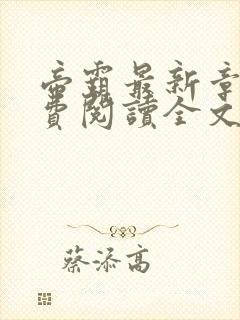 帝霸最新章
費閱讀全文
蔡添高